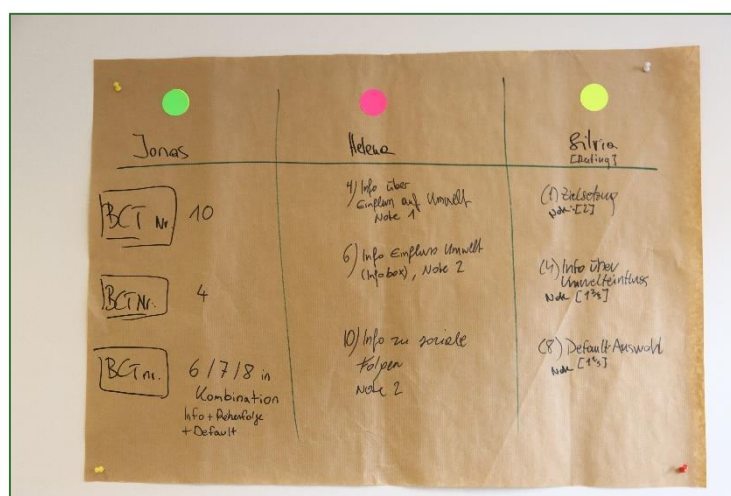 Jonas
BCT Nr. 10
BCT Nr. 4
BCT nr. 6/7/8 in
Kombination
Info + Reihenfolge
+ Default
Helena
4) Info über
Einfluss auf Umwelt
Note 1
6) Info Einfluss Umwelt
(Infobox), Note 2
10) Info zu soziale
Folgen
Note 2
Silvia
[Rating]
(1) Zielsetzung
Note: [2]
(4) Info über
Umwelteinfluss
Note
(8) Default Auswahl
Note